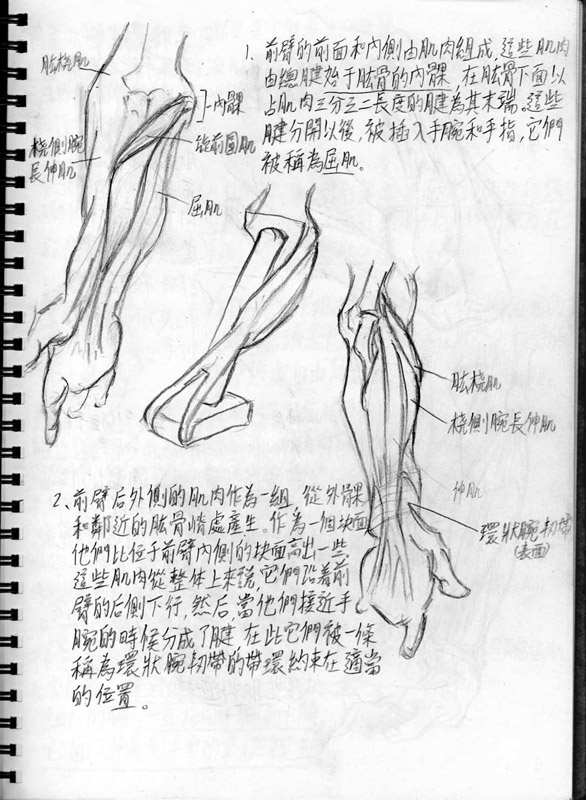 1、前臂的前面和內側由肌肉組成,這些肌肉
由總腱始于肱骨的內髁,在肱骨下面,以
占肌肉三分之二長度的腱為其末端,這些
腱分開以後,被插入手腕和手指,它們
被稱為屈肌。
肱橈肌
內髁
橈側腕
長伸肌
旋前圓肌
屈肌
肱橈肌
橈側腕長伸肌
伸肌
環狀腕韧帶
(表面)
2、前臂后外側的肌肉作為一組,從外髁
和鄰近的肱骨悄處產生。作為一個块面
他們比位于前臂內側的块面高出一些,
這些肌肉從整体上來説,它們沿着前
臂的后側下行,然后當他們接近手
腕的時侯分成了腱,在此它們被一條
稱為環狀腕韧帶的帶環約束在適當
的位置。